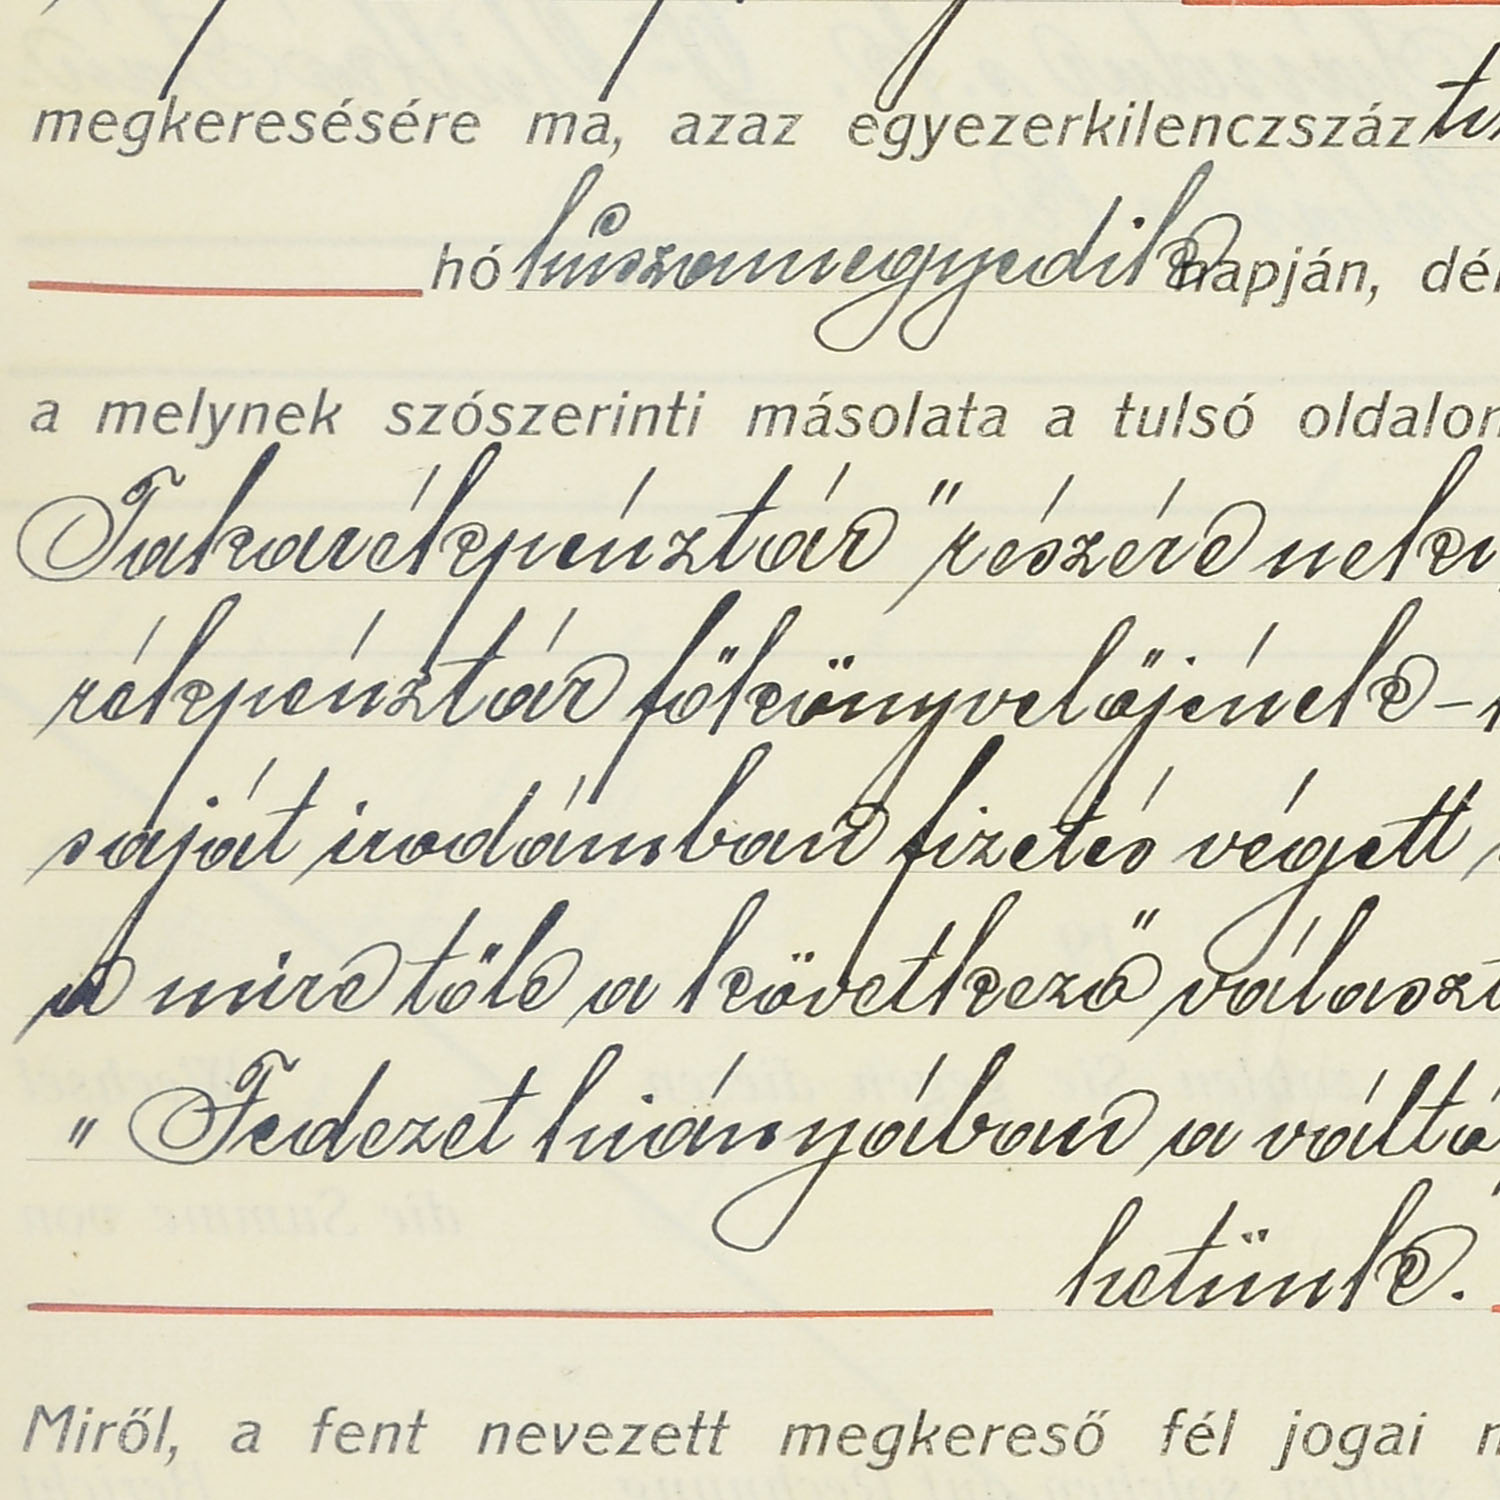 megkeresésére ma, azaz egyezerkilenczszáz
hó húszonnegyedik napján, dél
a melynek szószerinti másolata a tulsó oldalon
Takarékpénztár" részére neki
rékpénztár főkönyvelőjének –
saját irodámban fizetés végett
a mire tőle a következő választ
„Fedezet hiányában a váltó
hetünk.
Miről, a fent nevezett megkereső fél jogai